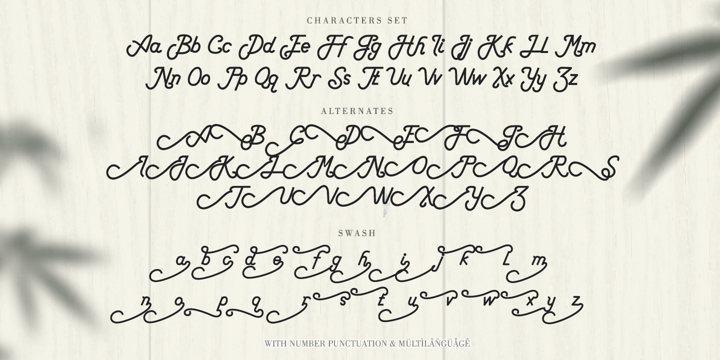 CHARACTERS SET
Aa Bb Cc Dd Ee Ff Gg Hh Ii Jj Kk Ll Mm
Nn Oo Pp Qq Rr Ss Tt Uu Vv Ww Xx Yy Zz
ALTERNATES
A B C D E F G H
I J K L M N O P Q R S
T U V W X Y Z
SWASH
a b c d e f g h i j k l m
n o p q r s t u v w x y z
WITH NUMBER PUNCTUATION & MÜLTÌLÂÑGÜÂGÈ